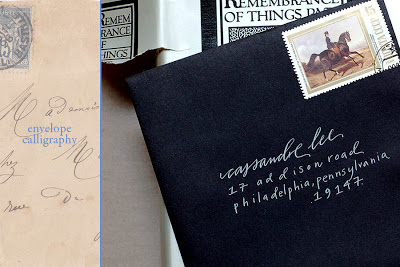 Madame
envelope
calligraphy
chez M
rue De
REMEMBRANCE
OF THINGS PAST
REMEMBRANCE
OF THINGS
cassandre lee
17 addison road
philadelphia, pennsylvania
19147